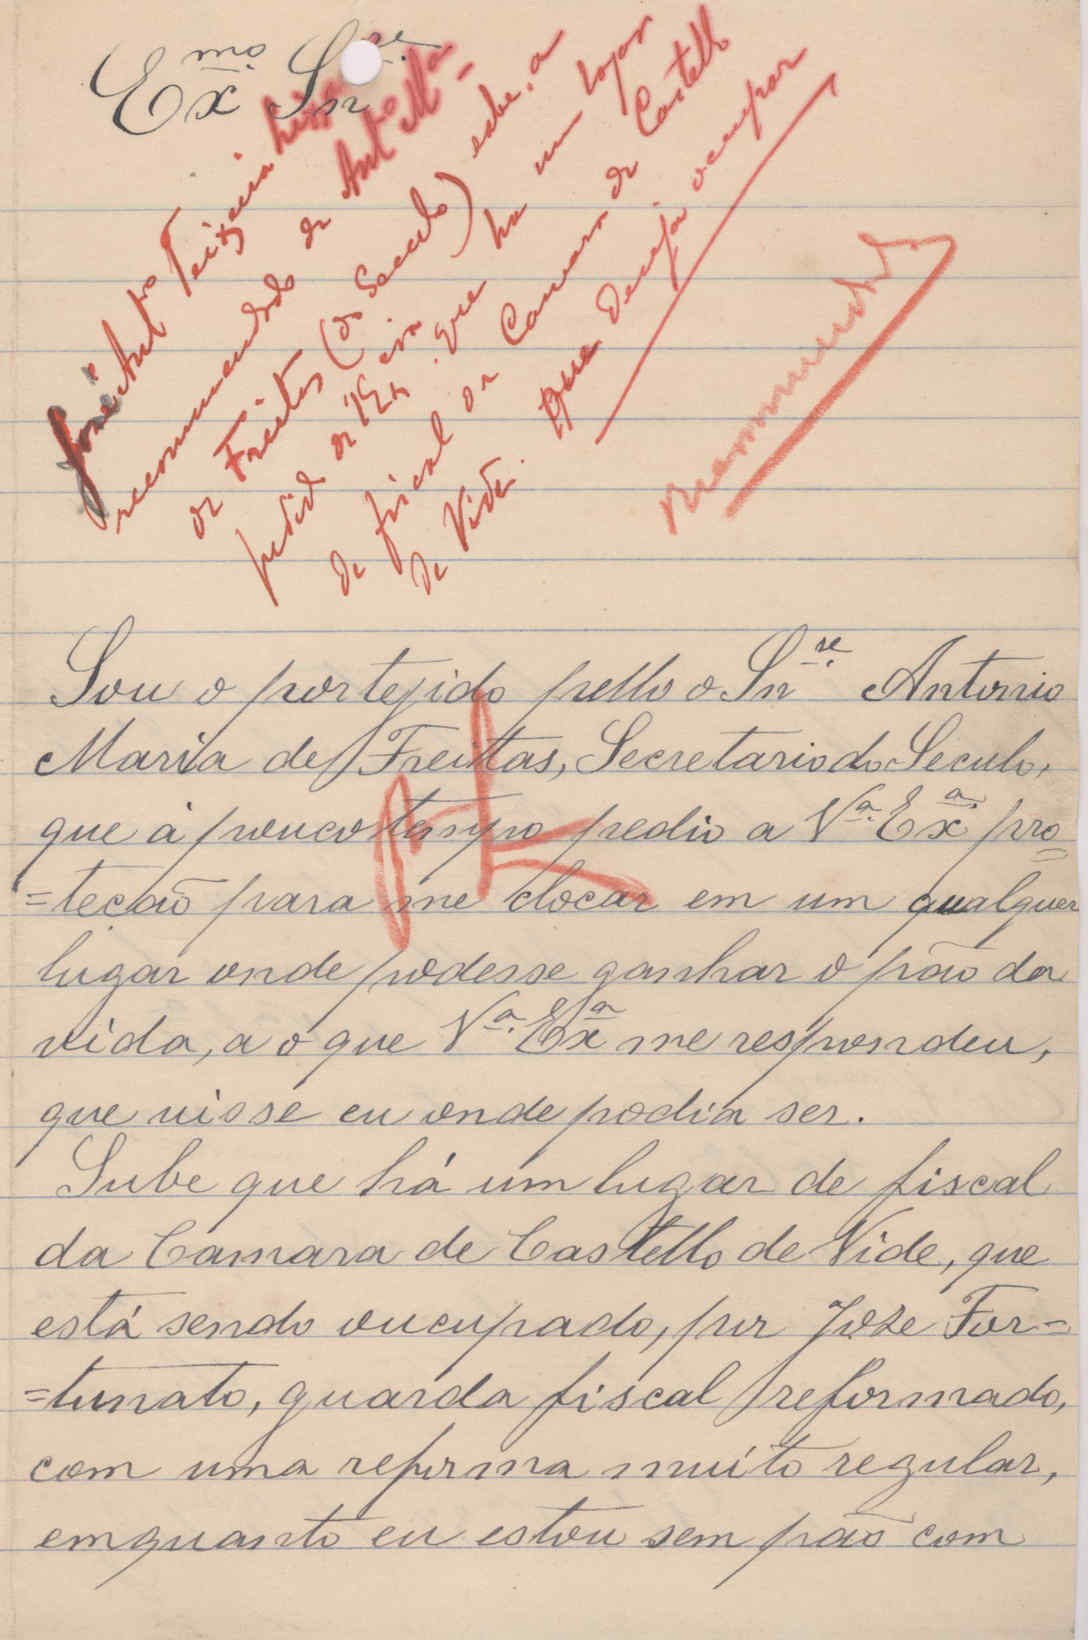 Exmo Snre
José Anto Teixeira
recommendado de Anto Ma
de Freitas (do Seculo) sabe, a
pedido de V Exa que ha um logar
de fiscal da Camara de Castello
de Vide. que deseja occupar
Sou o portejido pello o Snre Antonio
Maria de Freitas, Secretario do Seculo,
que á pouco tempo pedio a Va. Exa. pro=
=tecão para me clocar em um qualquer
lugar onde podesse ganhar o pão da
vida, a o que Va. Exa me respondeu,
que visse eu onde podia ser.
Sube que há um lugar de fiscal
da Camara de Castello de Vide, que
está sendo oucupado, por Joze For=
=tunato, guarda fiscal reformado,
com uma reforma muito regular,
emquanto eu estou sem pão com